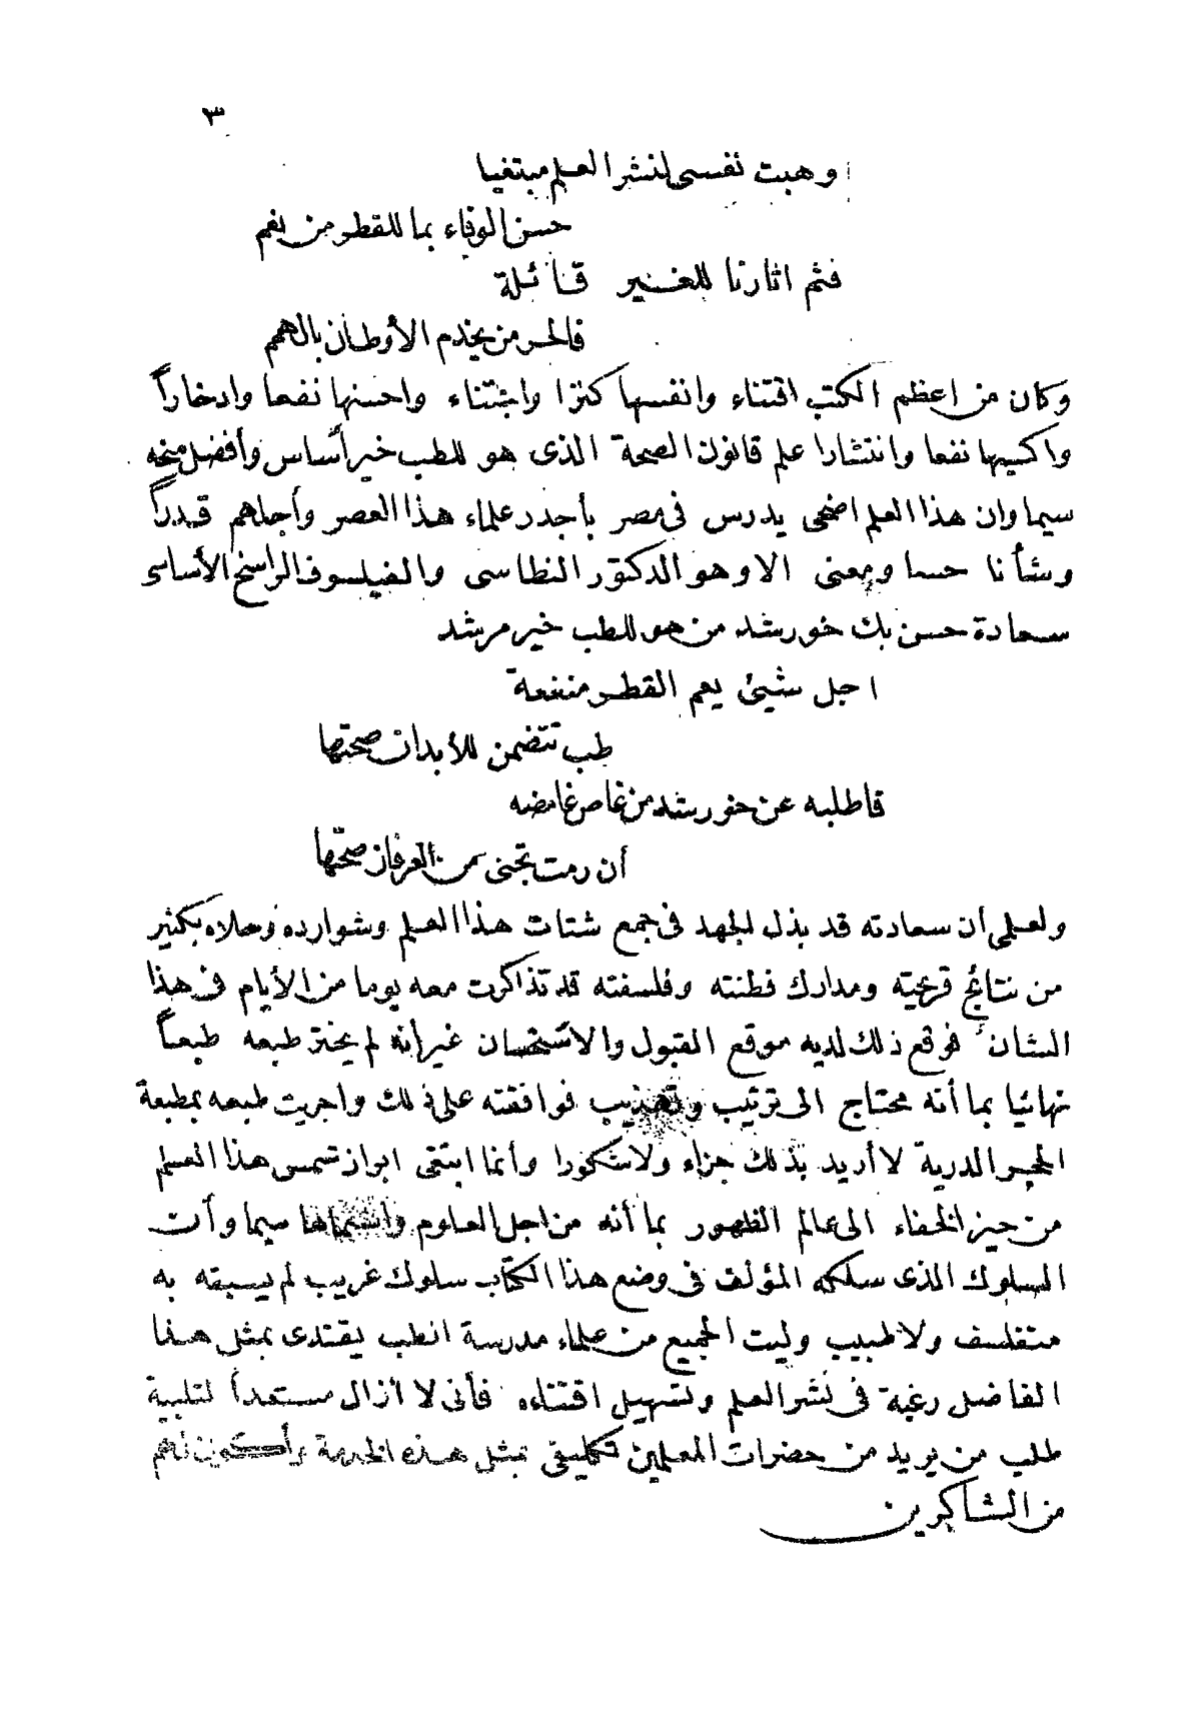 ٣
وهبت نفسى لنشر العلم مبتغيا
حسن الوفاء بما للقطر من نعم
فثم اثارنا للغير قائلة
فالحر من يخدم الأوطان بالهمم
وكان من اعظم الكتب اقتناء وانفسها كنزا واجتناء واحسنها نفعا وادخاراً
واكسبها نفعا وانتشارا علم قانون الصحة الذى هو للطب خير أساس وأفضل منحه
سيما وان هذا العلم اضحى يدرس فى مصر بأجدر علماء هذا العصر وأجلهم قدراً
وشأنا حسا ومعنى الا وهو الدكتور النطاسى والفيلسوف الراسخ الأساسى
سعادة حسن بك خورشد من هو للطب خير مرشد
اجل شيئ يعم القطر منفعة
طب تتضمن للأبدان صحتها
فاطلبه عن خورشد من غاص غامضه
أن رمت تجنى من العرفان صحتها
ولعلمى أن سعادته قد بذل الجهد فى جمع شتات هذا العلم وشوارده وحلاه بكثير
من نتائج قريحته ومدارك فطنته وفلسفته قد تذاكرت معه يوما من الأيام فى هذا
الشان فوقع ذلك لديه موقع القبول والاستحسان غير أنه لم يختر طبعه طبعاً
نهائيا بما أنه محتاج الى ترتيب وتهذيب فوافقته على ذلك واجريت طبعه بمطبعة
الحجر الدرية لا أريد بذلك جزاء ولا شكورا وأنما ابتغى ابراز شمس هذا العلم
من حيز الخفاء الى عالم الظهور بما أنه من اجل العلوم سيما وأن
السلوك الذى سلكه المؤلف فى وضع هذا الكتاب سلوك غريب لم يسبقه به
متفلسف ولا طبيب وليت الجميع من علماء مدرسة الطب يقتدى بمثل هذا
الفاضل رغبة فى نشر العلم وتسهيل اقتناءه فأنى لا أزال مستعداً لتلبية
طلب من يريد من حضرات المعلمين تكليفى بمثل هذه الخدمة وأكون لهم
من الشاكرين